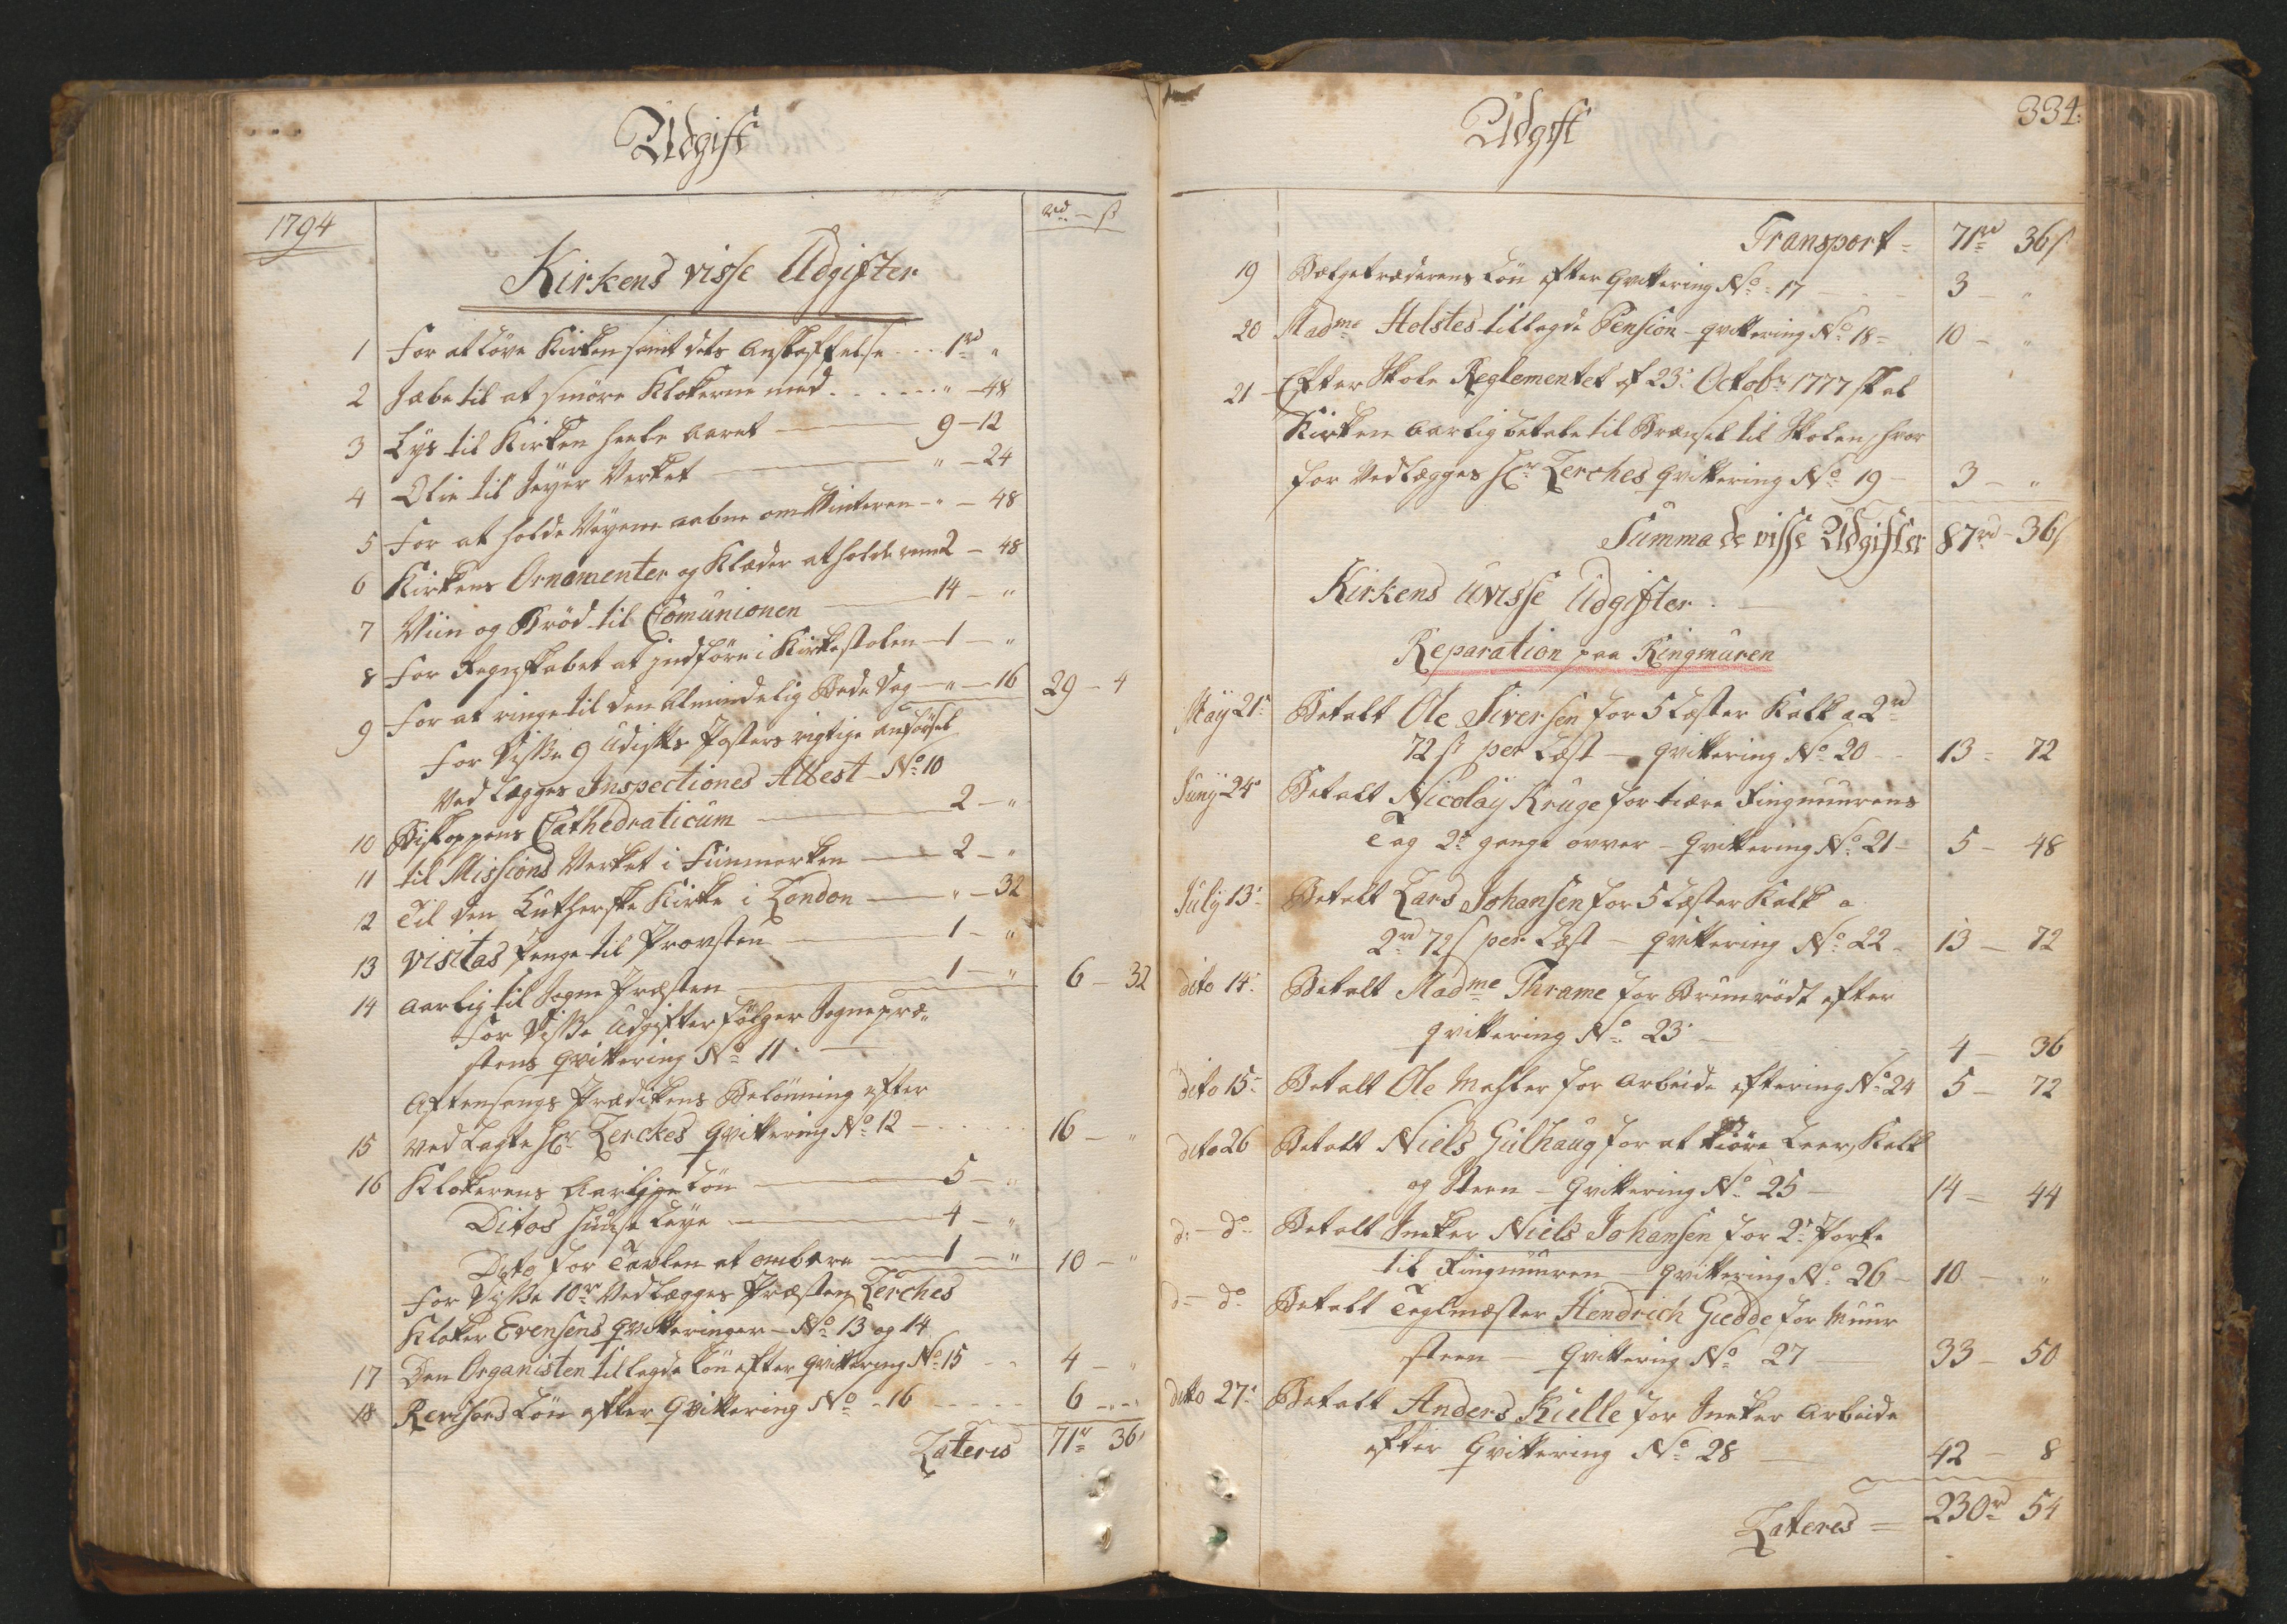 Udgift
1794
rd – ß
Kirkens visse Udgifter
1 For at Löve Kirken samt dets Anskaffelse 1rd "
2 Sæbe til at smöre Klokerne med " – 48
3 Lys til Kirken heele Aaret 9 – 12
4 Olie til Seyer Verket " – 24
5 For at holde Veyene aabne om Vinteren " – 48
6 Kirkens Ornamenter og Klæder at holde reene 2 – 48
7 Viin og Bröd til Comunionen 14 – "
8 For Regnskabet at Indföre i Kirkestolen 1 – "
9 For at ringe til den Almindelig Bededag " – 16 29 – 4
For disse 9 Udgifts Posters rigtige anförsel
Ved Lægges Inspectiones Attest No 10
10 Biskoppens Cathedraticum 2 – "
11 til Missions Verket i Finmarken 2 – "
12 Til den Lutherske Kirke i London " – 32
13 Visitas penge til Provsten 1 – "
14 Aarlig til Sogne Præsten 1 – " 6 – 32
For disse Udgifter fölger Sognepræ„
stens Qvittering No 11
Aftensangs Prædikens Belönning efter
15 ved Lagte Hr Lerches Qvittering No 12 16 – "
16 Klokerens Aarlige Lön 5 – "
Ditos Huuse Leye 4 – "
Dito for Tavlen at ombære 1 – " 10 – "
For disse 10rd Vedlægges Præsten Lerches
Kloker Evensens Qvitteringer – No 13 og 14
17 Den Organisten tillagde Lön efter Qvittering No 15 4 – "
18 Revisors Lön efter Qvittering No 16 6 – "
Lateris 71r 36
Udgift
334
Transport 71rd 36ß
19 Bælgetræderens Lön efter Qvittering No 17 3 – "
20 Madme Holstes tillagde Pension – qvittering No 18 10 – "
21 Efter Skole Reglementet af 23 Octobr 1777 skal
Kirken aarlig betale til Brænsel til Skolen, hvor
for Vedlægges Hr Lerches Qvittering No 19 – 3 – "
Summa de visse Udgifter 87rd – 36ß
Kirkens Uvisse Udgifter
Reparation paa Ringmuren
May 21 Betalt Ole Siversen for 5 Læster Kalk a 2rd
72 ß per Læst – qvittering No 20 13 – 72
Juny 24 Betalt Nicolay Kruge for tiære Ringmuurens
Tag 2 gange over – Qvittering No 21 – 5 – 48
July 13 Betalt Lars Johansen for 5 Læster Kalk a
2rd 72ß per Læst – qvittering No 22 13 – 72
dito 14 Betalt Madme Thrame for Bruunrödt efter
qvittering No 23 4 – 36
dito 15 Betalt Ole Mahler for Arbeide qvittering No 24 5 – 72
dito 26 Betalt Niels Gulhaug for at Kiöre Leer, Kalk
og Steen – Qvittering No 25 – 14 – 44
d – do Betalt Sneker Niels Johansen for 2 Porte
til Ringmuuren – qvittering No 26 – 10 – "
d – do Betalt Teglmæster Hendrich Giedde for Muur
steen – Qvittering No 27 33 – 50
dito 27 Betalt Anders Kielle for Sneker Arbeide
efter Qvittering No 28 42 – 8
Lateres 230rd 54